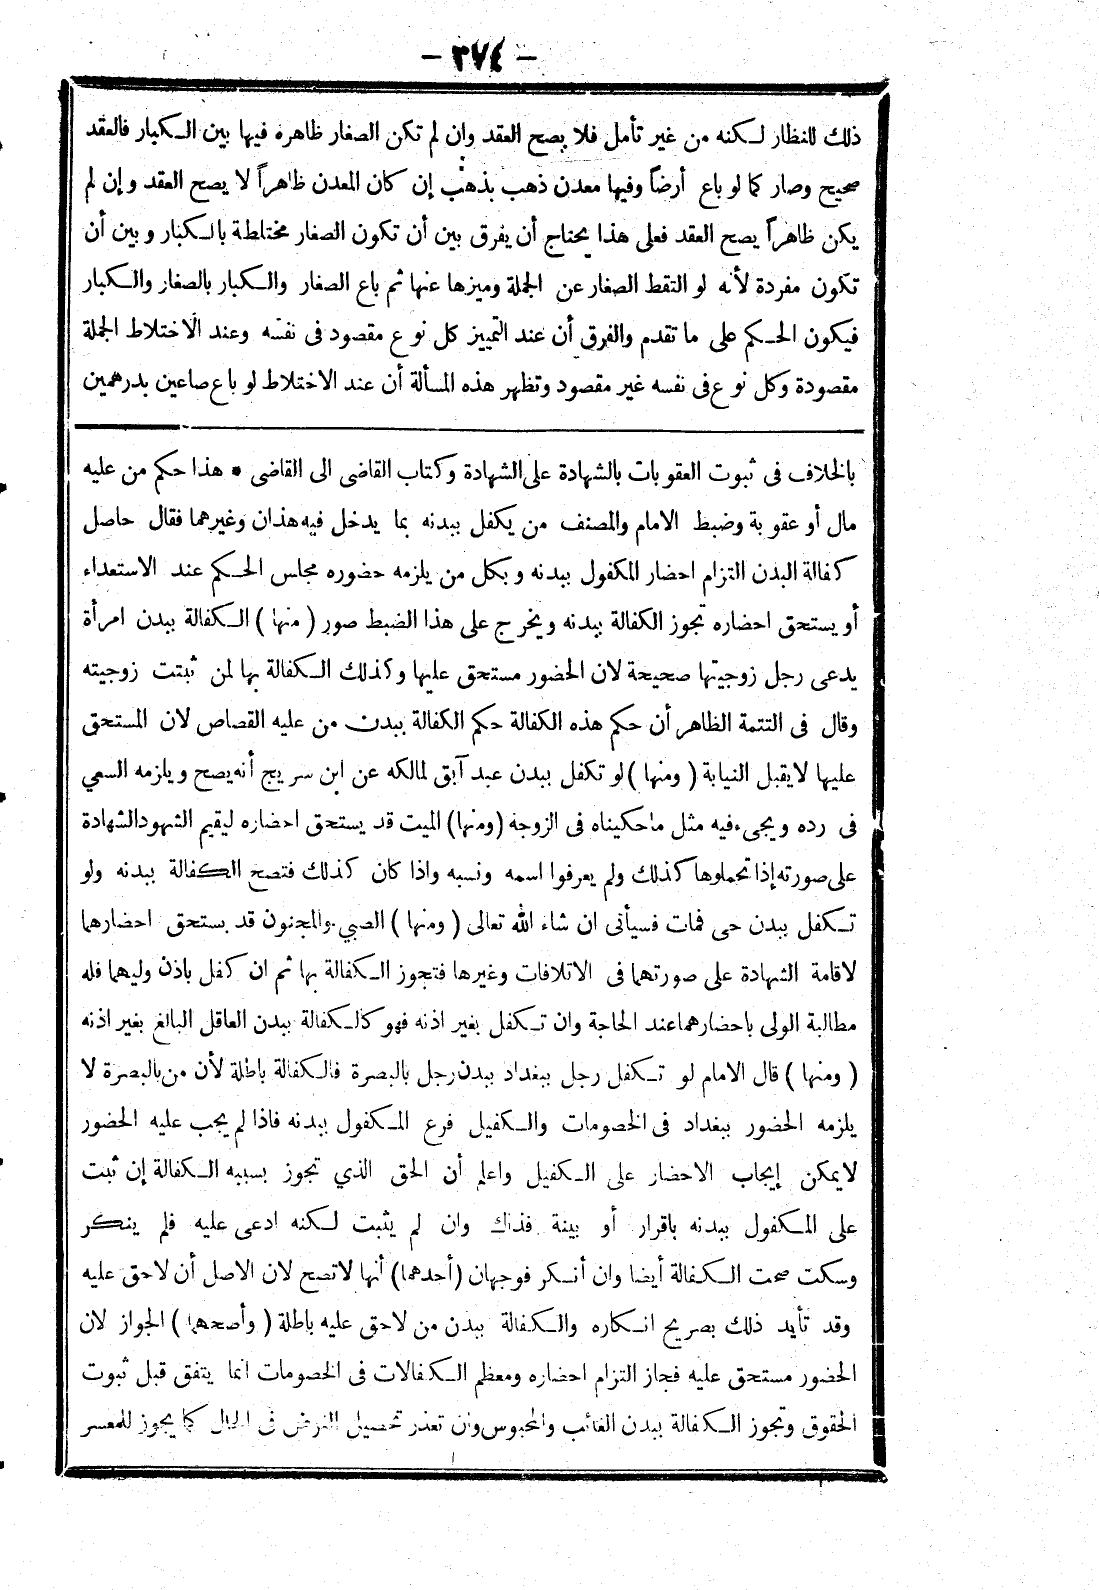 - ٣٧٤ -
ذلك للنظار لكنه من غير تأمل فلا يصح العقد وان لم تكن الصغار ظاهرة فيها بين الكبار فالعقد
صحيح وصار كما لو باع أرضاً وفيها معدن ذهب بذهب إن كان المعدن ظاهراً لا يصح العقد وإن لم
يكن ظاهراً يصح العقد فعلى هذا يحتاج أن يفرق بين أن تكون الصغار مختلطة بالكبار وبين أن
تكون مفردة لأنه لو التقط الصغار عن الجملة وميزها عنها ثم باع الصغار والكبار بالصغار والكبار
فيكون الحكم على ما تقدم والفرق أن عند التمييز كل نوع مقصود فى نفسه وعند الاختلاط الجملة
مقصودة وكل نوع فى نفسه غير مقصود وتظهر هذه المسألة أن عند الاختلاط لو باع صاعين بدرهمين
بالخلاف فى ثبوت العقوبات بالشهادة على الشهادة وكتاب القاضى الى القاضى * هذا حكم من عليه
مال أو عقوبة وضبط الامام والمصنف من يكفل ببدنه بما يدخل فيه هذان وغيرهما فقال حاصل
كفالة البدن التزام احضار المكفول ببدنه وبكل من يلزمه حضوره مجلس الحكم عند الاستعداء
أو يستحق احضاره تجوز الكفالة ببدنه ويخرج على هذا الضبط صور (منها) الكفالة ببدن امرأة
يدعى رجل زوجيتها صحيحة لان الحضور مستحق عليها وكذلك الكفالة بها لمن ثبتت زوجيته
وقال فى التتمة الظاهر أن حكم هذه الكفالة حكم الكفالة ببدن من عليه القصاص لان المستحق
عليها لا يقبل النيابة (ومنها) لو تكفل ببدن عبد آبق لمالكه عن ابن سريج أنه يصح ويلزمه السمي
فى رده ويجىء فيه مثل ما حكيناه فى الزوجة (ومنها) الميت قد يستحق احضاره ليقيم الشهود الشهادة
على صورته إذا تحملوها كذلك ولم يعرفوا اسمه ونسبه واذا كان كذلك فتصح الكفالة ببدنه ولو
تكفل ببدن حى فمات فسيأتى ان شاء الله تعالى (ومنها) الصبي والمجنون قد يستحق احضارهما
لاقامة الشهادة على صورتهما فى الاتلافات وغيرها فتجوز الكفالة بها ثم ان كفل باذن وليهما فله
مطالبة الولى باحضارهما عند الحاجة وان تكفل بغير اذنه فهو كالكفالة ببدن العاقل البالغ بغير اذنه
(ومنها) قال الامام لو تكفل رجل ببغداد ببدن رجل بالبصرة فالكفالة باطلة لأن من بالبصرة لا
يلزمه الحضور ببغداد فى الخصومات والكفيل فرع المكفول ببدنه فاذا لم يجب عليه الحضور
لا يمكن إيجاب الاحضار على الكفيل واعلم أن الحق الذي تجوز بسببه الكفالة إن ثبت
على المكفول ببدنه باقرار أو بينة فذاك وان لم يثبت لكنه ادعى عليه فلم ينكر
وسكت صحت الكفالة أيضا وان أنكر فوجهان (أحدهما) أنها لا تصح لان الاصل أن لا حق عليه
وقد تأيد ذلك بصريح انكاره والكفالة ببدن من لا حق عليه باطلة (وأصحهما) الجواز لان
الحضور مستحق عليه فجاز التزام احضاره ومعظم الكفالات فى الخصومات انما يتفق قبل ثبوت
الحقوق وتجوز الكفالة ببدن الغائب والمحبوس وان تعذر تحصيل الغرض فى الحال كما يجوز للمعسر